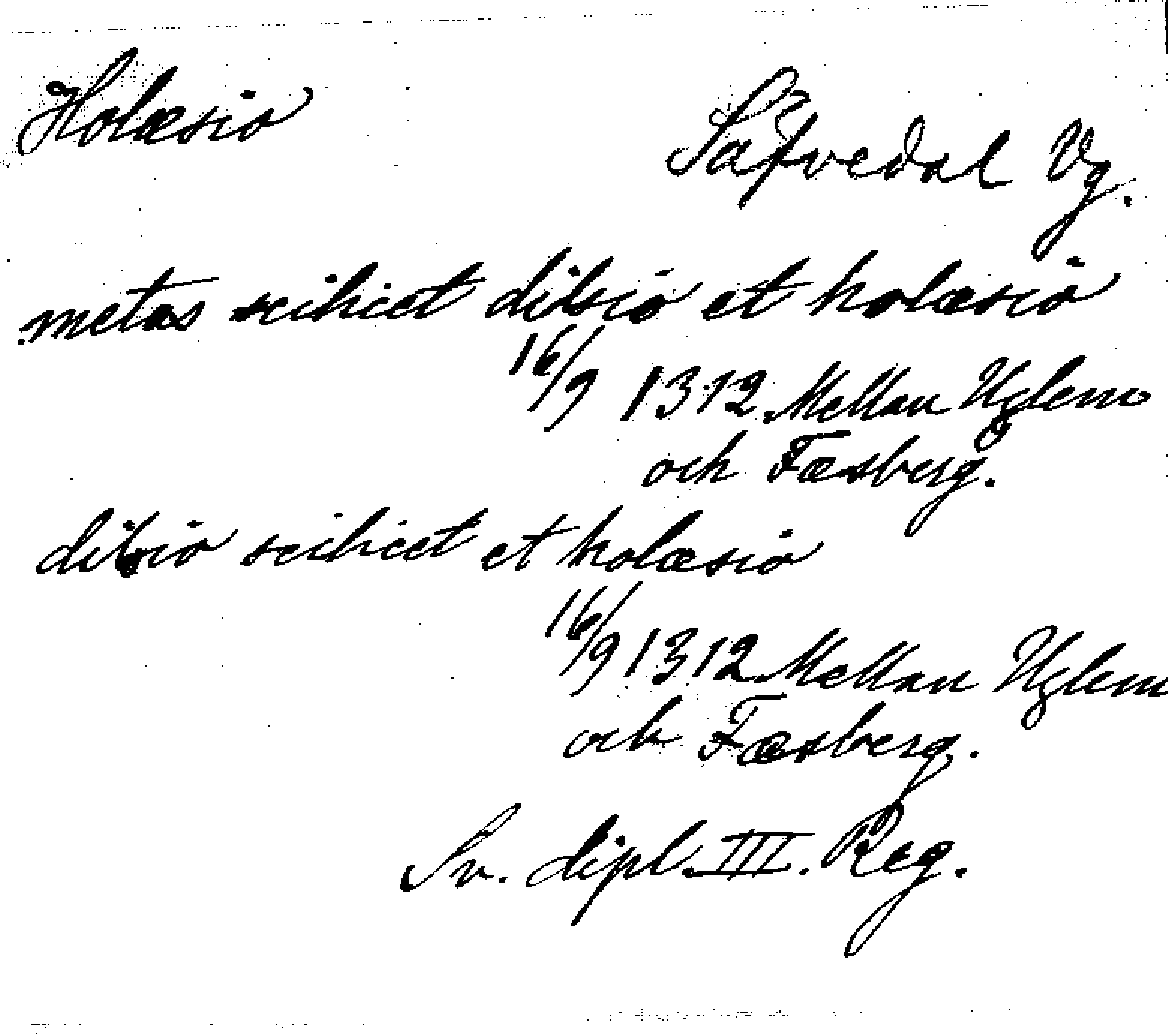 Holæsio
Säfvedal Vg.
metas scilicet dilsio et holæsio
16/9 1312. Mellan Uglem
och Fæsberg.
dilsio scilicet et holæsio
16/9 1312 Mellan Uglem
och Fæsberg.
Sv. dipl. III. Reg.